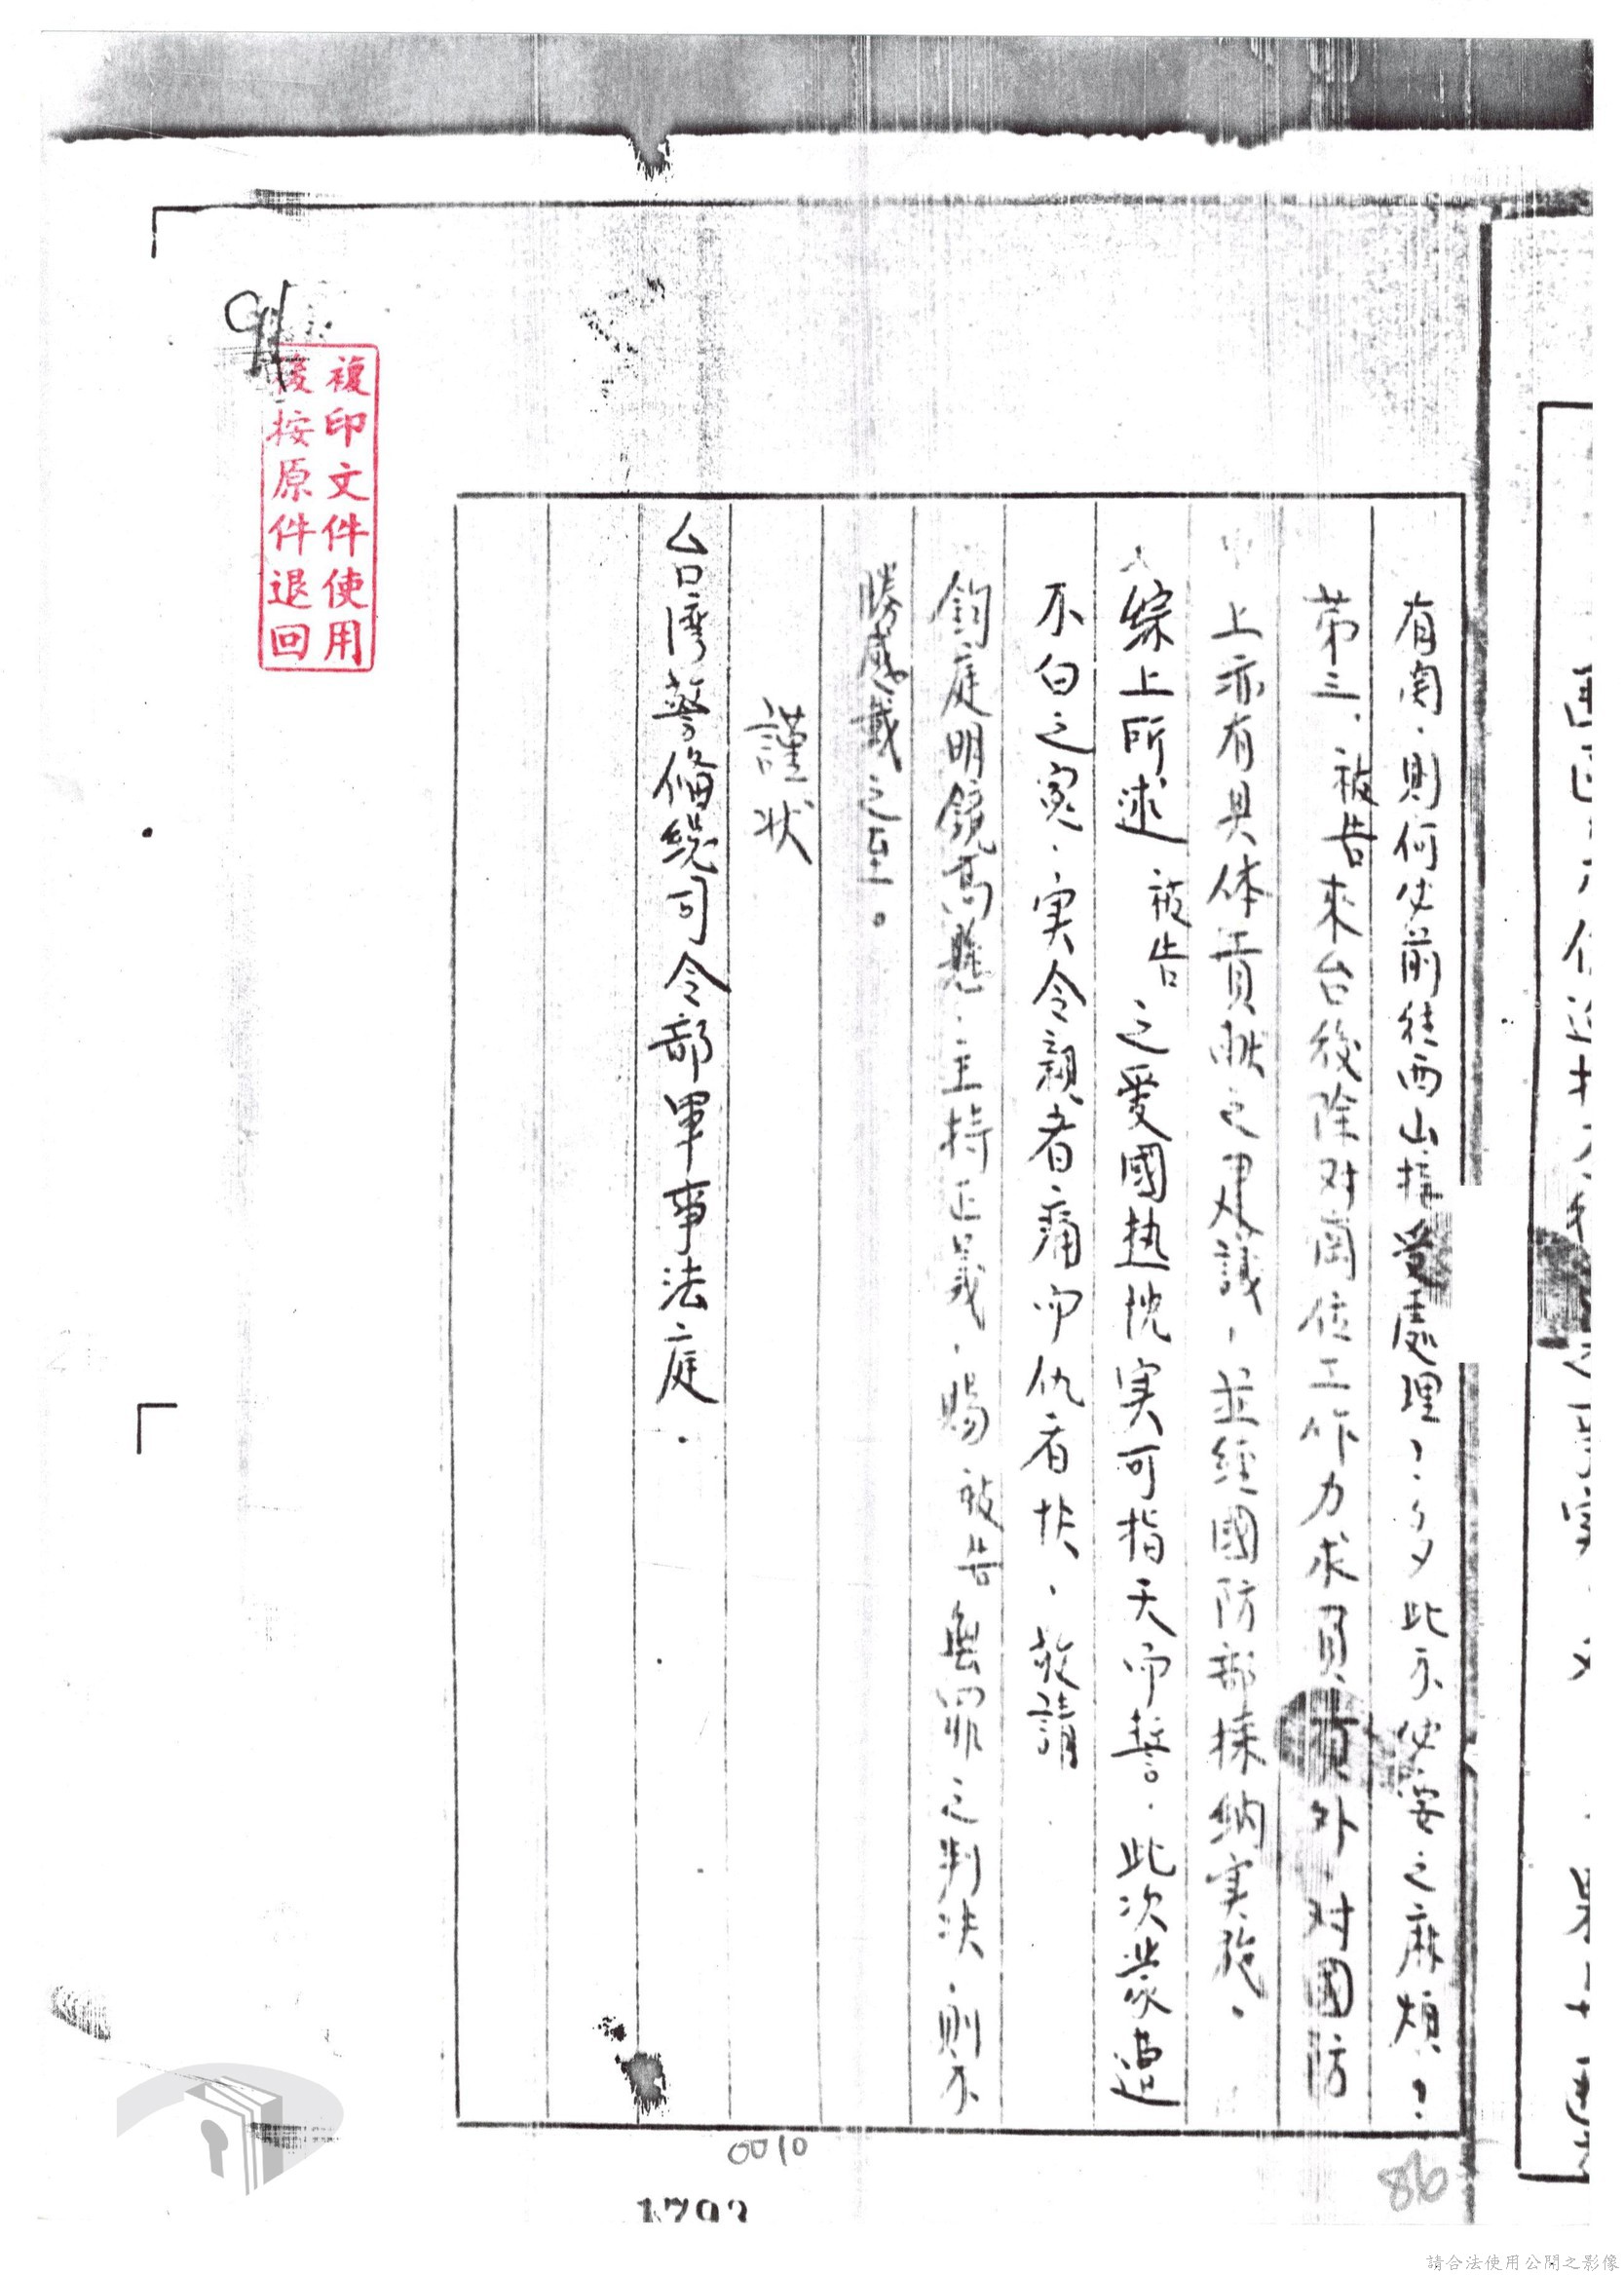 有関，則何必前往西山接受處理？多此不必要之麻煩？
第三，被告來台後除对崗位工作力求負責外，对國防
上亦有具体貢献之建議，並經國防部採納实施。
綜上所述 被告 之愛國熱忱实可指天而誓。此次蒙遭
不白之冤，实令親者痛而仇者快，敬請
鈞庭明鏡高懸，主持正義，賜 被告 無罪之判決，則不
勝感戴之至。
謹狀
台湾警俻総司令部軍事法庭．
複印文件使用
後按原件退回
0010
86
1793
請合法使用公開之影像